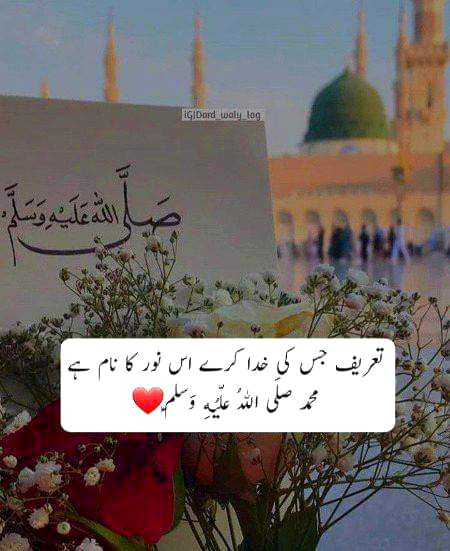 iG|Dard_waly_log
صَلَّى اللهُ عَلَيْهِ وَسَلَّمَ
تعریف جس کی خدا کرے اس نور کا نام ہے
محمد صلَی اللہُ علَیُہِ وَسلم❤️